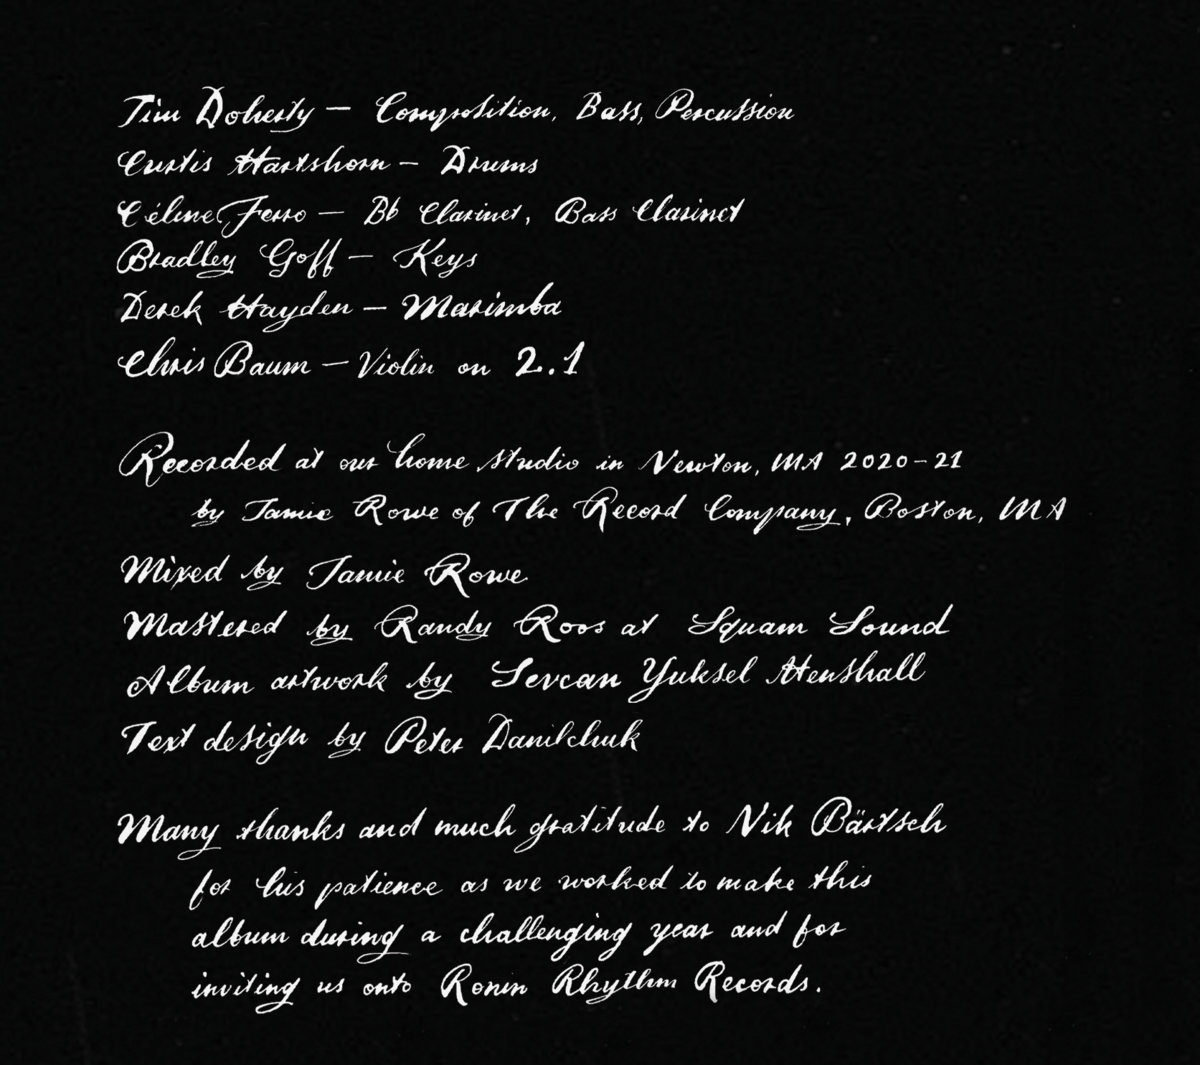 Tim Doherty – Composition, Bass, Percussion
Curtis Hartshorn – Drums
Céline Ferro – Bb Clarinet, Bass Clarinet
Bradley Goff – Keys
Derek Hayden – Marimba
Chris Baum – Violin on 2.1
Recorded at our home studio in Newton, MA 2020–21
by Jamie Rowe of The Record Company, Boston, MA
Mixed by Jamie Rowe
Mastered by Randy Roos at Squam Sound
Album artwork by Sevcan Yuksel Henshall
Text design by Peter Danilchuk
Many thanks and much gratitude to Nik Bärtsch
for his patience as we worked to make this
album during a challenging year and for
inviting us onto Ronin Rhythm Records.